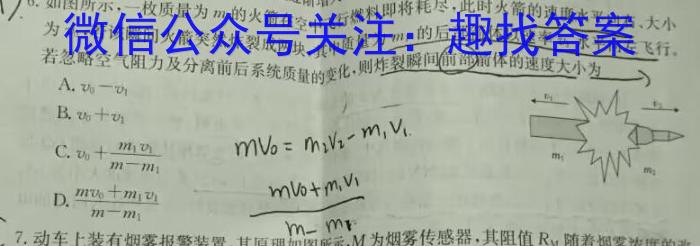 6. 如图所示,一枚质量为 m 的火箭 燃料即将耗尽,此时火箭的速度水平 大小
为
微信公众号关注:趣找答案
飞行。
若忽略空气阻力及分离前后系统质量的变化,则炸裂瞬间前部箭体的速度大小为
A. v₀－v₁
B. v₀＋v₁
C. v₀＋m₁v₁/(m－m₁)
D. (mv₀＋m₁v₁)/(m－m₁)
mv₀ = m₂v₂ － m₁v₁.
mv₀+m₁v₁
m － m₁
v₁ v₂
m₁ m₂
7. 动车上装有烟雾报警装置,其原理如图所示,M 为烟雾传感器,其阻值 R_M 随着烟雾浓度的